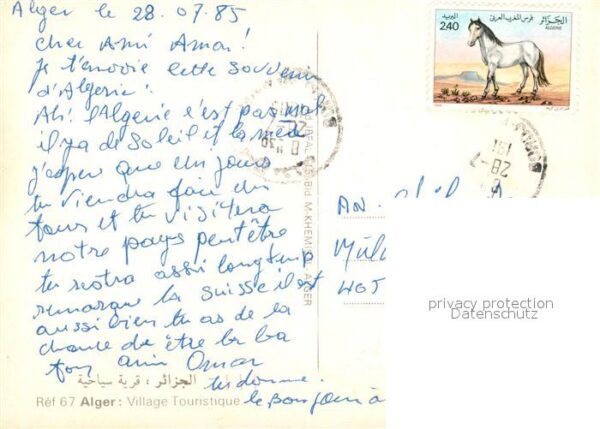 Alger le 28.07.85
cher Ami Amar!
je t'envoie cette souvenir
d'Algerie.
Ah! l'Algerie c'est pas mal
il y a de soleil et la mer
j'esper que un jours
tu viendra fair un
tours et tu visitera
notre pays peut être
tu restra assi longtemp
remarque la suisse il est
aussi bien tu as de la
chance de être la ba
ton ami Omar
te donne
le Bonjour à
الجزائر : قرية سياحية
Réf 67 Alger : Village Touristique
M'KHEMISTI ALGER
البريد
2.40
فرس المغرب العربي
الجزائر
ALGERIE
28-7
191
AN.
Mül
privacy protection
Datenschutz